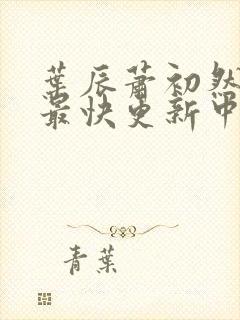 葉辰蕭初然
最快更新中
青葉